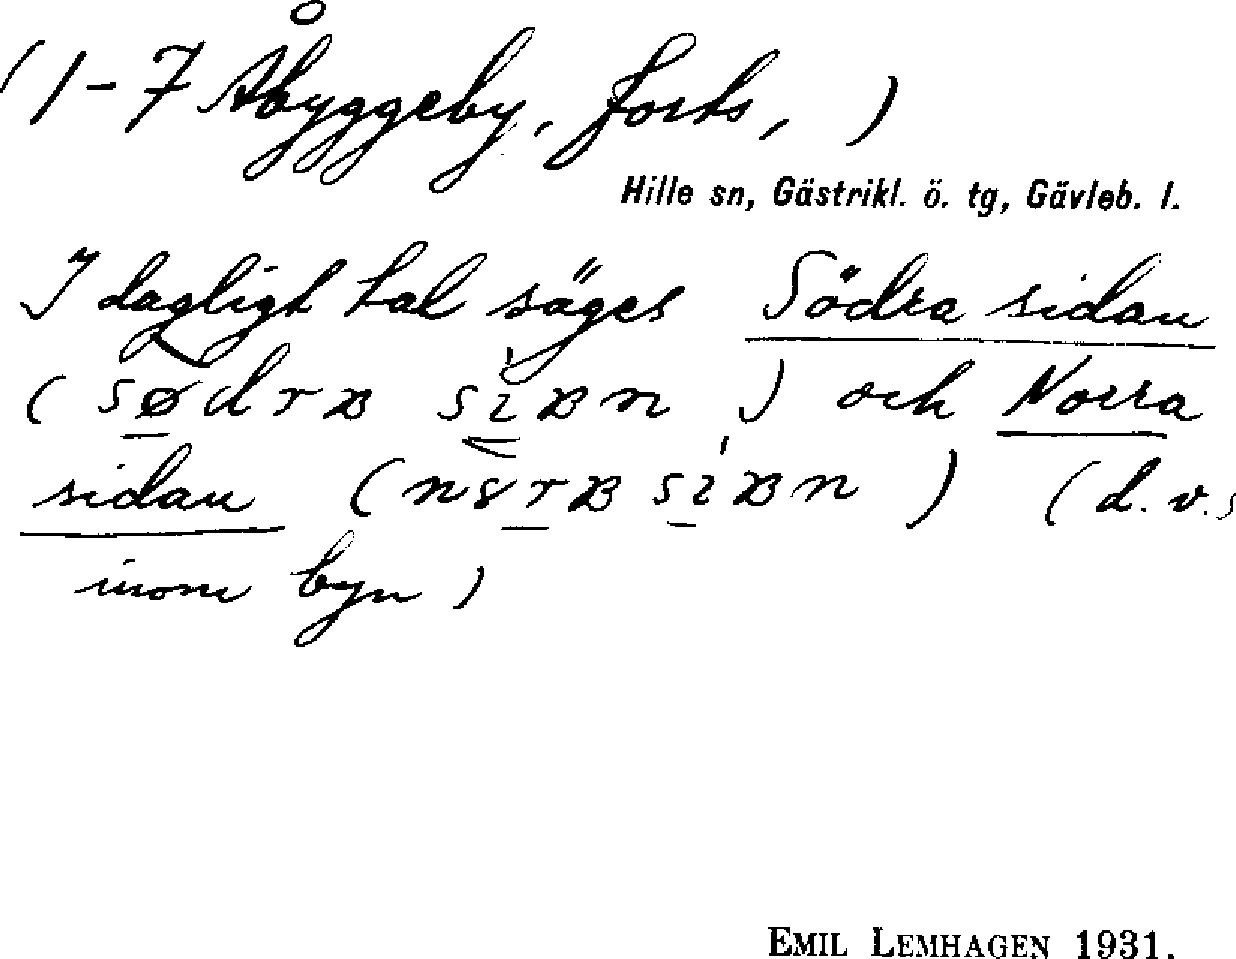 (1-7 Åbyggeby, forts, )
Hille sn, Gästrikl. ö. tg, Gävleb. l.
I dagligt tal säges Södra sidan
( sødrʙ sìʙn ) och Norra
sidan (nsrʙ síʙn ) (d.v.s
inom byn )
EMIL LEMHAGEN 1931.